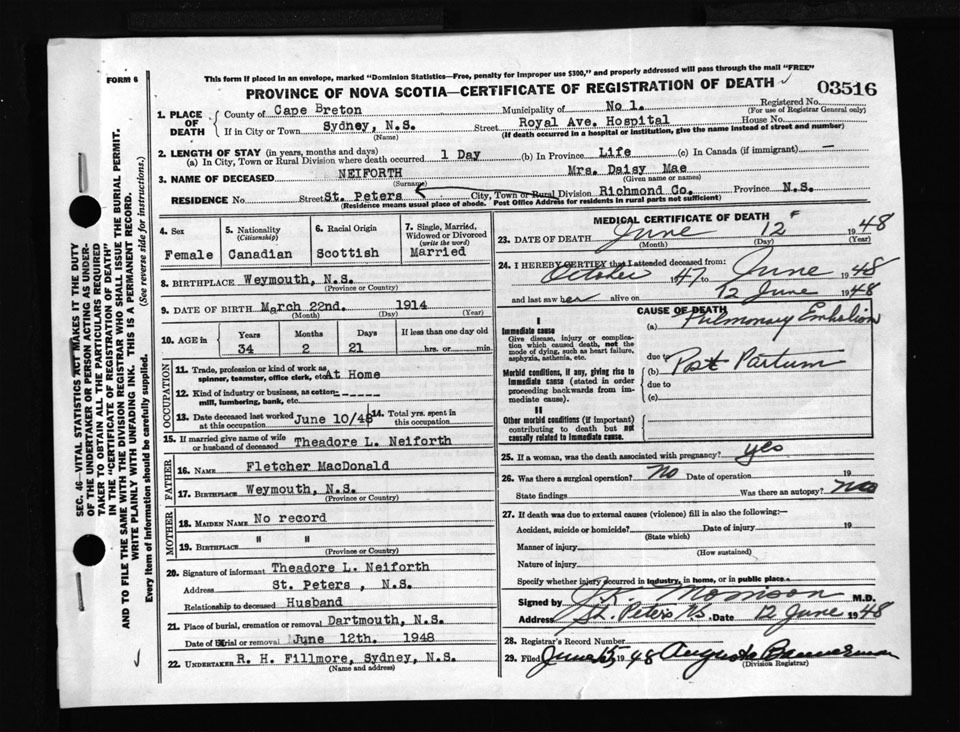 This form if placed in an envelope, marked "Dominion Statistics—Free, penalty for improper use $300," and properly addressed will pass through the mail "FREE"
FORM 6
PROVINCE OF NOVA SCOTIA—CERTIFICATE OF REGISTRATION OF DEATH
03516
1. PLACE OF DEATH
County of Cape Breton Municipality of No 1. Registered No.
(For use of Registrar General only)
If in City or Town Sydney, N.S. Street Royal Ave. Hospital House No.
(Name) (If death occurred in a hospital or institution, give the name instead of street and number)
2. LENGTH OF STAY (in years, months and days)
(a) In City, Town or Rural Division where death occurred 1 Day (b) In Province Life (c) In Canada (if immigrant) —
3. NAME OF DECEASED NEIFORTH Mrs. Daisy Mae
(Surname) (Given name or names)
RESIDENCE No Street St. Peters City, Town or Rural Division Richmond Co. Province N.S.
(Residence means usual place of abode. Post Office Address for residents in rural parts not sufficient)
4. Sex
Female
5. Nationality (Citizenship)
Canadian
6. Racial Origin
Scottish
7. Single, Married, Widowed or Divorced (write the word)
Married
8. BIRTHPLACE Weymouth, N.S.
(Province or Country)
9. DATE OF BIRTH March 22nd. 1914
(Month) (Day) (Year)
10. AGE in Years Months Days If less than one day old
34 2 21 hrs. or min.
OCCUPATION
11. Trade, profession or kind of work as spinner, teamster, office clerk, etc. At Home
12. Kind of industry or business, as cotton mill, lumbering, bank, etc. ------
13. Date deceased last worked at this occupation June 10/48
14. Total yrs. spent in this occupation
15. If married give name of wife or husband of deceased Theadore L. Neiforth
FATHER
16. NAME Fletcher MacDonald
17. BIRTHPLACE Weymouth, N.S.
(Province or Country)
MOTHER
18. MAIDEN NAME No record
19. BIRTHPLACE " "
(Province or Country)
20. Signature of informant Theadore L. Neiforth
Address St. Peters, N.S.
Relationship to deceased Husband
21. Place of burial, cremation or removal Dartmouth, N.S.
Date of burial or removal June 12th. 1948
22. UNDERTAKER R. H. Fillmore, Sydney, N.S.
(Name and address)
MEDICAL CERTIFICATE OF DEATH
23. DATE OF DEATH June 12 1948
(Month) (Day) (Year)
24. I HEREBY CERTIFY that I attended deceased from:
October 47 to June 1948
and last saw her alive on 12 June 1948
CAUSE OF DEATH
I
Immediate cause
Give disease, injury or complication which caused death, not the mode of dying, such as heart failure, asphyxia, asthenia, etc.
(a) Pulmonary Embolism
due to
Morbid conditions, if any, giving rise to immediate cause (stated in order proceeding backwards from immediate cause).
(b) Post Partum
due to
(c)
II
Other morbid conditions (if important) contributing to death but not causally related to immediate cause.
25. If a woman, was the death associated with pregnancy? yes
26. Was there a surgical operation? No Date of operation 19
State findings Was there an autopsy? No
27. If death was due to external causes (violence) fill in also the following:—
Accident, suicide or homicide? Date of injury 19
(State which)
Manner of injury
(How sustained)
Nature of injury
Specify whether injury occurred in industry, in home, or in public place
Signed by J.K. Morrison M.D.
Address St. Peters N.S. Date 12 June 1948
28. Registrar's Record Number
29. Filed June 15 1948 Augusta Bannerman
(Division Registrar)
SEC. 46—VITAL STATISTICS ACT MAKES IT THE DUTY
OF THE UNDERTAKER OR PERSON ACTING AS UNDER-
TAKER TO OBTAIN ALL THE PARTICULARS REQUIRED
IN THE "CERTIFICATE OF REGISTRATION OF DEATH"
AND TO FILE THE SAME WITH THE DIVISION REGISTRAR WHO SHALL ISSUE THE BURIAL PERMIT.
WRITE PLAINLY WITH UNFADING INK. THIS IS A PERMANENT RECORD.
Every item of Information should be carefully supplied. (See reverse side for instructions.)